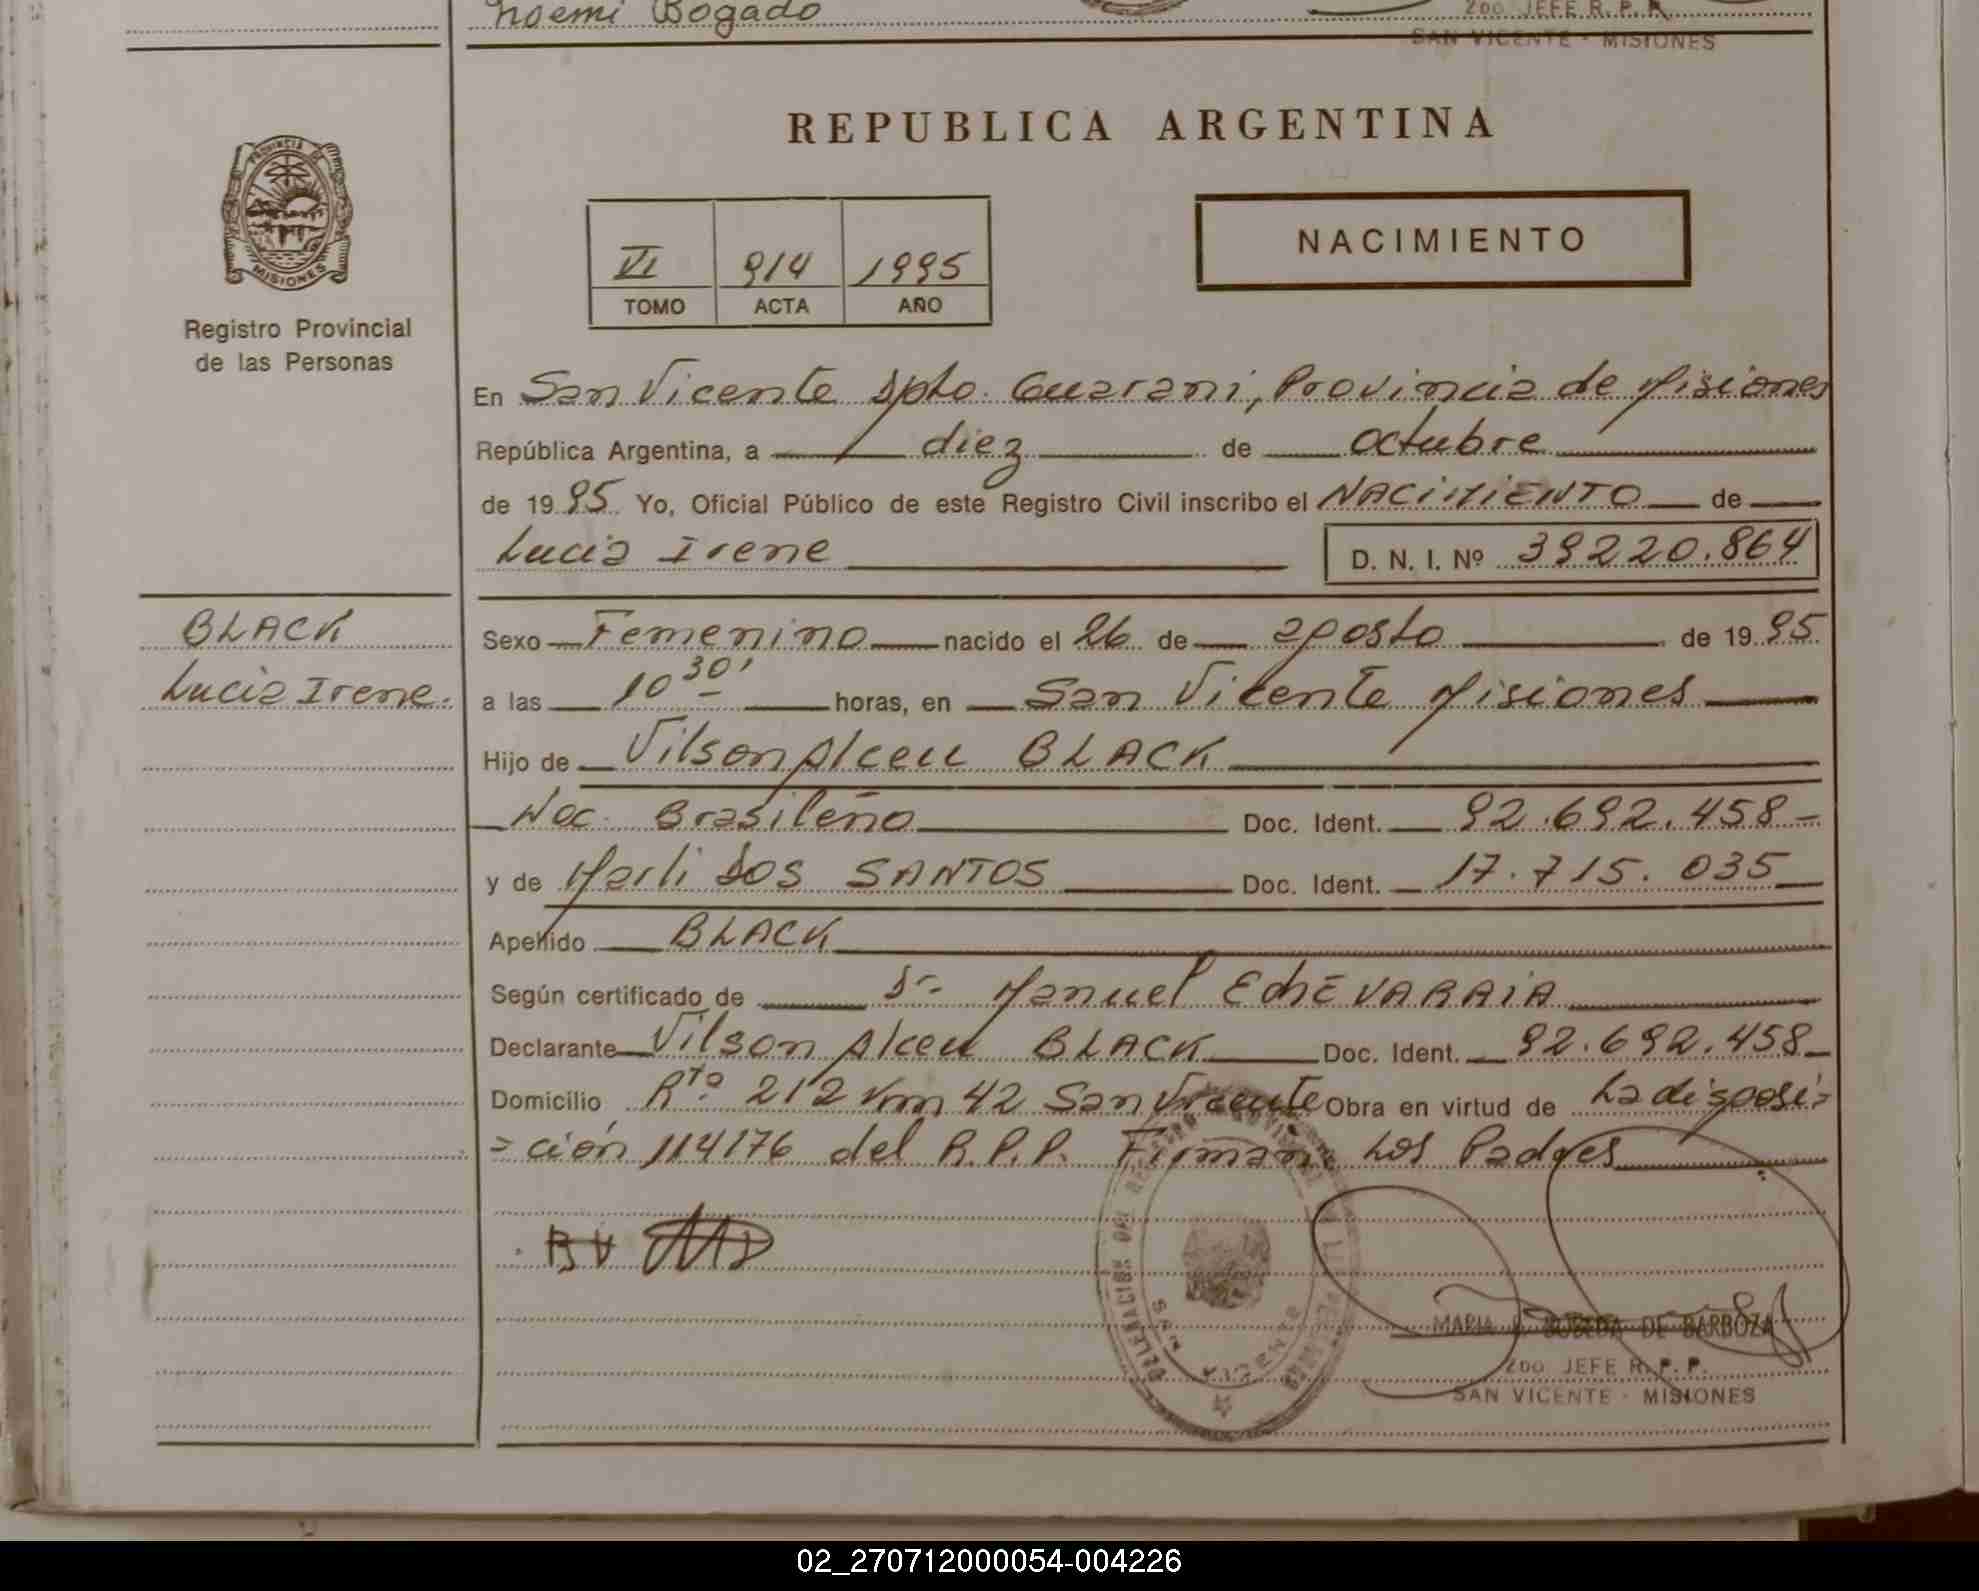 Noemi Bogado
2do JEFE R. P. P.
SAN VICENTE - MISIONES
REPUBLICA ARGENTINA
PROVINCIA DE
MISIONES
Registro Provincial
de las Personas
VI 914 1995
TOMO ACTA AÑO
NACIMIENTO
En San Vicente Dpto. Guarani, Provincia de Misiones
República Argentina, a diez de octubre
de 1995 Yo, Oficial Público de este Registro Civil inscribo el NACIMIENTO de
Lucia Irene D. N. I. Nº 39220.864
BLACK
Lucia Irene.
Sexo Femenino nacido el 26 de agosto de 1995
a las 10 30' horas, en San Vicente Misiones
Hijo de Vilson Alceu BLACK
Nac. Brasileño Doc. Ident. 92.692.458-
y de Marli DOS SANTOS Doc. Ident. 17.715.035
Apellido BLACK
Según certificado de Dr. Manuel EchEVARRIA
Declarante Vilson Alceu BLACK Doc. Ident. 92.692.458
Domicilio Rta 212 Km 42 San Vicente Obra en virtud de La disposi=
=ción 114176 del R.P.P. Firman Los Padres
BV
MARIA BOBEDA DE BARBOZA
2do JEFE R. P. P.
SAN VICENTE - MISIONES
02_270712000054-004226